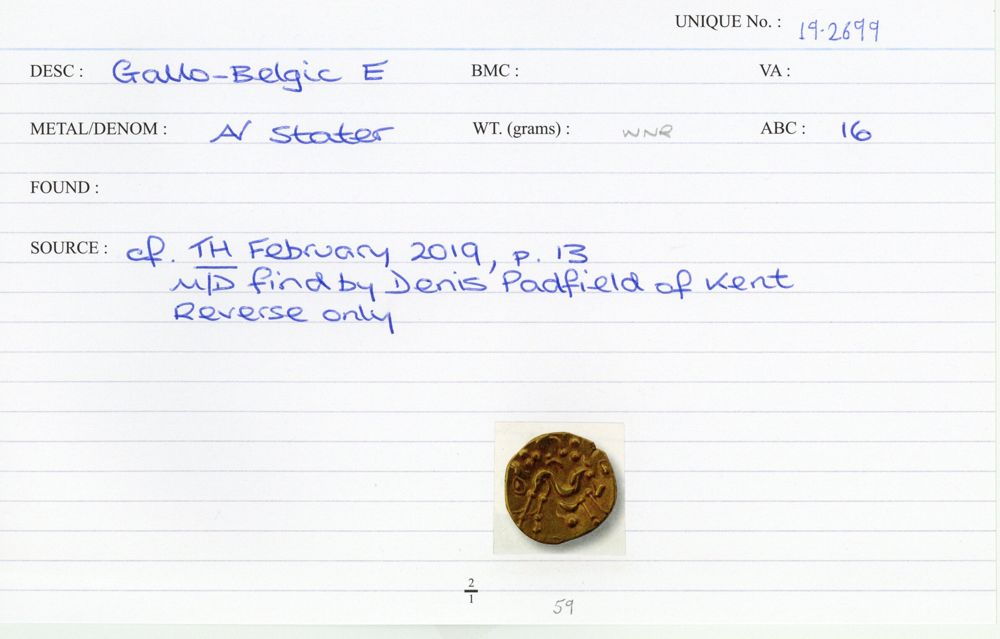 UNIQUE No. : 19.2699
DESC : Gallo-Belgic E BMC : VA :
METAL/DENOM : AV Stater WT. (grams) : WNR ABC : 16
FOUND :
SOURCE : cf. TH February 2019, p. 13
M/D find by Denis Padfield of Kent
Reverse only
2
1
59